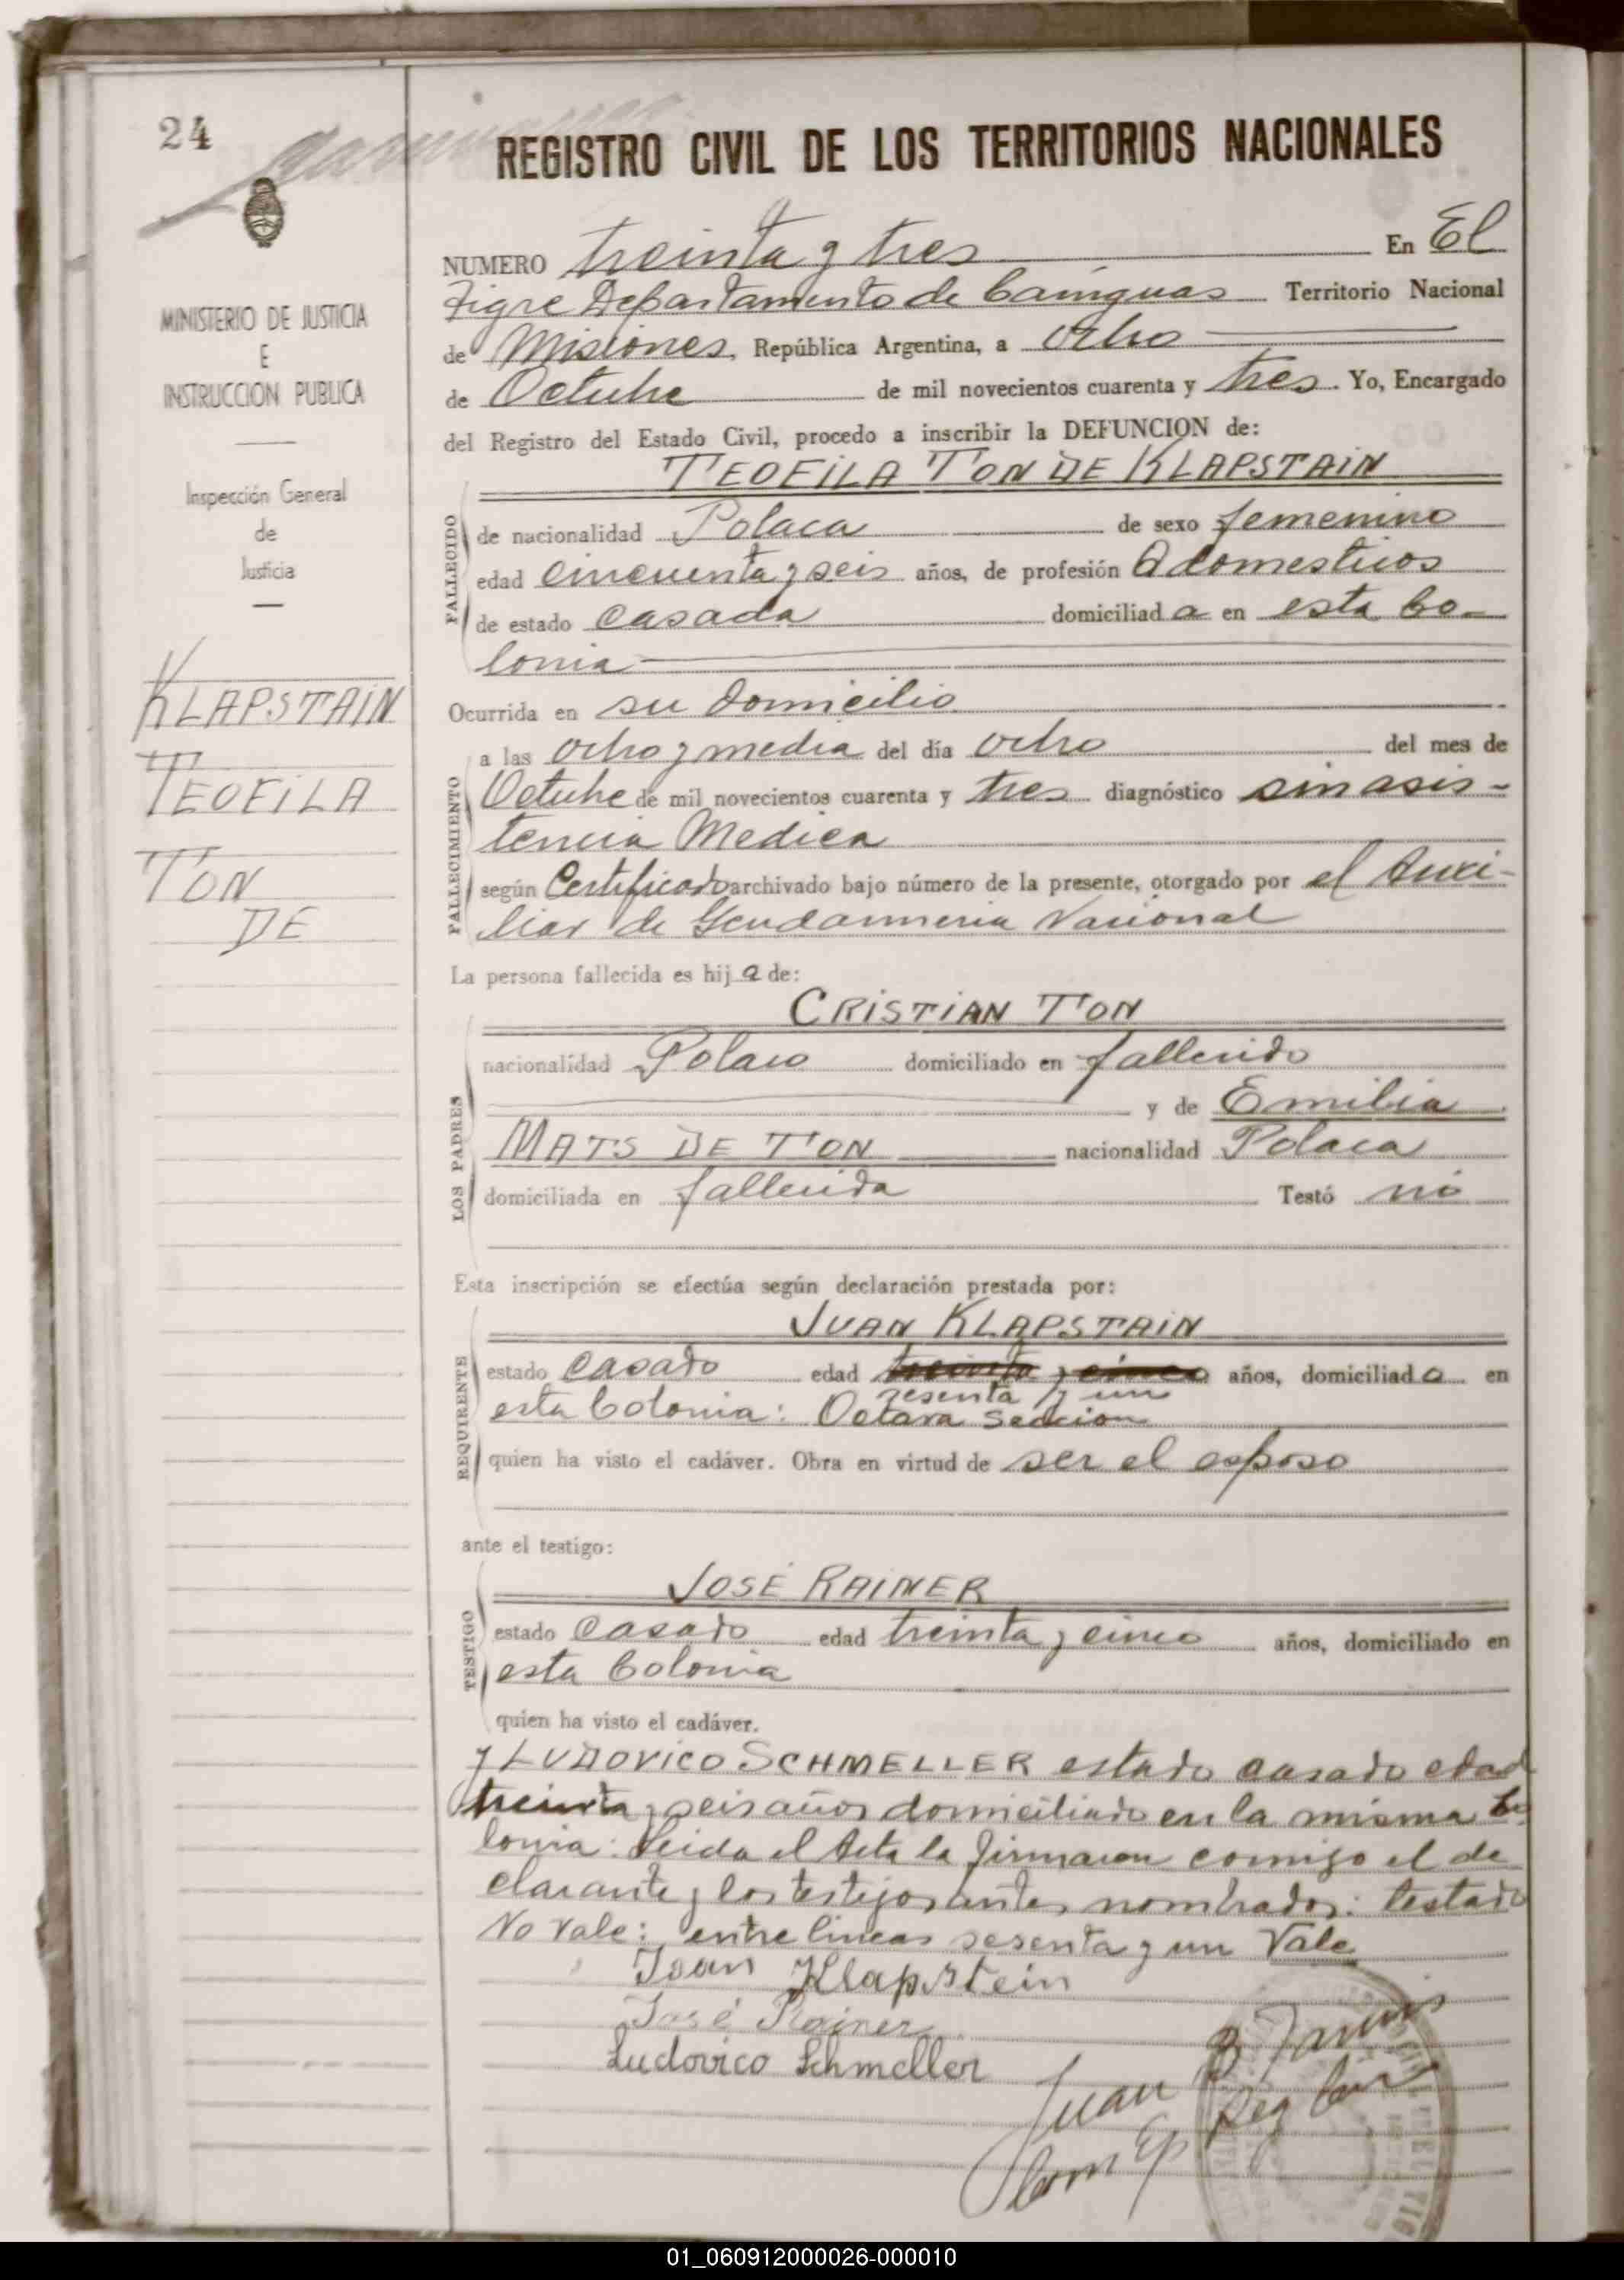 24
REGISTRO CIVIL DE LOS TERRITORIOS NACIONALES
MINISTERIO DE JUSTICIA
E
INSTRUCCION PUBLICA
Inspección General
de
Justicia
KLAPSTAIN
TEOFILA
TON
DE
NUMERO treinta y tres En El
Tigre Departamento de Cainguas Territorio Nacional
de Misiones, República Argentina, a ocho
de Octubre de mil novecientos cuarenta y tres. Yo, Encargado
del Registro del Estado Civil, procedo a inscribir la DEFUNCION de:
TEOFILA TON DE KLAPSTAIN
FALLECIDO
de nacionalidad Polaca de sexo femenino
edad cincuenta y seis años, de profesión Q domesticos
de estado casada domiciliad a en esta Co-
lonia
Ocurrida en su domicilio
FALLECIMIENTO
a las ocho y media del día ocho del mes de
Octubre de mil novecientos cuarenta y tres diagnóstico sin asis-
tencia Medica
según Certificado archivado bajo número de la presente, otorgado por el Auxi-
liar de Gendarmeria Nacional
La persona fallecida es hij a de:
CRISTIAN TON
LOS PADRES
nacionalidad Polaco domiciliado en fallecido
y de Emilia
MATS DE TON nacionalidad Polaca
domiciliada en fallecida Testó no
Esta inscripción se efectúa según declaración prestada por:
JUAN KLAPSTAIN
REQUIRENTE
estado casado edad treinta y cinco años, domiciliad o en
sesenta y un
esta Colonia: Octava Seccion
quien ha visto el cadáver. Obra en virtud de ser el esposo
ante el testigo:
JOSÉ RAINER
TESTIGO
estado casado edad treinta y cinco años, domiciliado en
esta Colonia
quien ha visto el cadáver.
y LUDOVICO SCHMELLER estado casado edad
treinta y seis años domiciliado en la misma Co
lonia: Leida el Acta la firmaron comigo el de
clarante y los testigos antes nombrados: testado
No vale: entre lineas sesenta y un Vale
Joan Klapstein
José Rainer
Ludovico Schmeller
Juan B
01_060912000026-000010